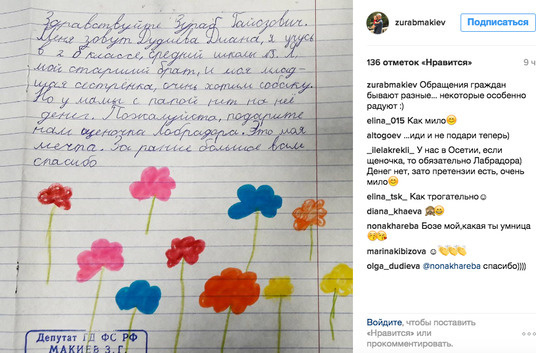 Здравствуйте Зураб Гайозович.
Меня зовут Дудиева Диана, я учусь
в 2 б классе, средней школы
мой старший брат, и моя млад-
шая сестрёнка, очень хотим собаку.
Но у мамы с папой нит на неё
денег. Пожалуйста, подарите
нам щеночка Лабрадора. Это моя
мечта. За раннее большое вам
спасибо
Депутат ГД ФС РФ
МАКИЕВ З.Г.
zurabmakiev
Подписаться
136 отметок «Нравится»
9 ч
zurabmakiev Обращения граждан
бывают разные... некоторые особенно
радуют :)
elina_015 Как мило😊
altogoev ...иди и не подари теперь)
_ilelakrekli_ У нас в Осетии, если
щеночка, то обязательно Лабрадора)
Денег нет, зато претензии есть, очень
мило😊
elina_tsk_ Как трогательно☺
diana_khaeva 🙈😊
nonakhareba Бозе мой,какая ты умница
marinakibizova ☺👏👏👏
olga_dudieva @nonakhareba спасибо))))
Войдите, чтобы поставить
«Нравится» или
прокомментировать.